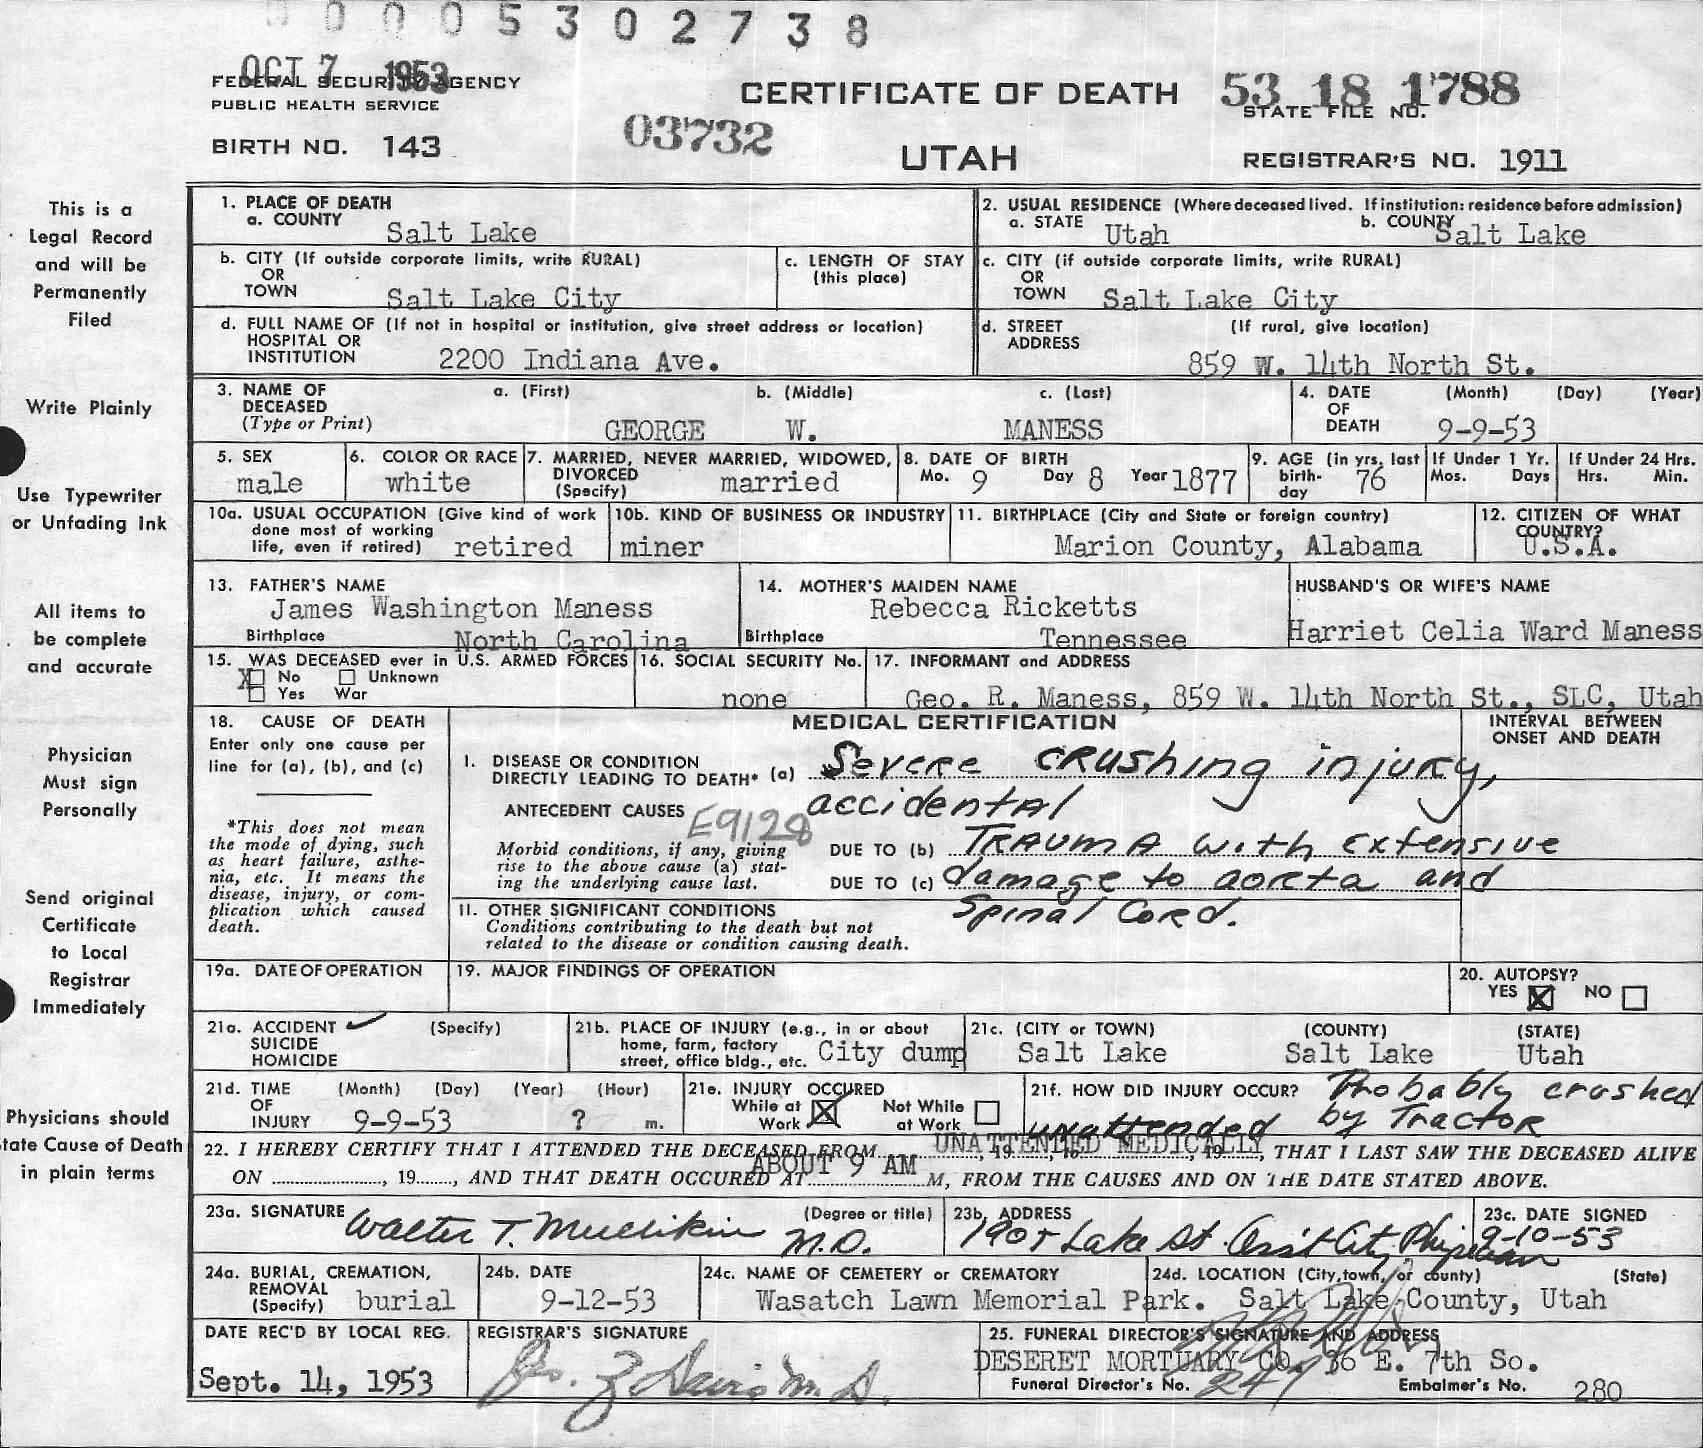 0 0 0 0 5 3 0 2 7 3 8
OCT 7 1953
FEDERAL SECURITY AGENCY
PUBLIC HEALTH SERVICE
BIRTH NO. 143
03732
CERTIFICATE OF DEATH
UTAH
53 18 1788
STATE FILE NO.
REGISTRAR'S NO. 1911
This is a
Legal Record
and will be
Permanently
Filed
Write Plainly
Use Typewriter
or Unfading Ink
All items to
be complete
and accurate
Physician
Must sign
Personally
Send original
Certificate
to Local
Registrar
Immediately
Physicians should
tate Cause of Death
in plain terms
1. PLACE OF DEATH
a. COUNTY Salt Lake
2. USUAL RESIDENCE (Where deceased lived. If institution: residence before admission)
a. STATE Utah b. COUNTY Salt Lake
b. CITY (If outside corporate limits, write RURAL)
OR
TOWN Salt Lake City
c. LENGTH OF STAY
(this place)
c. CITY (if outside corporate limits, write RURAL)
OR
TOWN Salt Lake City
d. FULL NAME OF (If not in hospital or institution, give street address or location)
HOSPITAL OR
INSTITUTION 2200 Indiana Ave.
d. STREET (If rural, give location)
ADDRESS
859 W. 14th North St.
3. NAME OF a. (First) b. (Middle) c. (Last)
DECEASED
(Type or Print) GEORGE W. MANESS
4. DATE (Month) (Day) (Year)
OF
DEATH 9-9-53
5. SEX
male
6. COLOR OR RACE
white
7. MARRIED, NEVER MARRIED, WIDOWED,
DIVORCED
(Specify) married
8. DATE OF BIRTH
Mo. 9 Day 8 Year 1877
9. AGE (in yrs. last
birth-
day 76
If Under 1 Yr.
Mos. Days
If Under 24 Hrs.
Hrs. Min.
10a. USUAL OCCUPATION (Give kind of work
done most of working
life, even if retired) retired
10b. KIND OF BUSINESS OR INDUSTRY
miner
11. BIRTHPLACE (City and State or foreign country)
Marion County, Alabama
12. CITIZEN OF WHAT
COUNTRY?
U.S.A.
13. FATHER'S NAME
James Washington Maness
Birthplace North Carolina
14. MOTHER'S MAIDEN NAME
Rebecca Ricketts
Birthplace Tennessee
HUSBAND'S OR WIFE'S NAME
Harriet Celia Ward Maness
15. WAS DECEASED ever in U.S. ARMED FORCES
X No Unknown
Yes War
16. SOCIAL SECURITY No.
none
17. INFORMANT and ADDRESS
Geo. R. Maness, 859 W. 14th North St., SLC, Utah
18. CAUSE OF DEATH
Enter only one cause per
line for (a), (b), and (c)
*This does not mean
the mode of dying, such
as heart failure, asthe-
nia, etc. It means the
disease, injury, or com-
plication which caused
death.
MEDICAL CERTIFICATION
INTERVAL BETWEEN
ONSET AND DEATH
1. DISEASE OR CONDITION
DIRECTLY LEADING TO DEATH* (a) Severe crushing injury,
ANTECEDENT CAUSES accidental
E9128
Morbid conditions, if any, giving
rise to the above cause (a) stat-
ing the underlying cause last.
DUE TO (b) Trauma with extensive
DUE TO (c) damage to aorta and
Spinal Cord.
11. OTHER SIGNIFICANT CONDITIONS
Conditions contributing to the death but not
related to the disease or condition causing death.
19a. DATE OF OPERATION
19. MAJOR FINDINGS OF OPERATION
20. AUTOPSY?
YES X NO
21a. ACCIDENT ✓ (Specify)
SUICIDE
HOMICIDE
21b. PLACE OF INJURY (e.g., in or about
home, farm, factory
street, office bldg., etc. City dump
21c. (CITY or TOWN) (COUNTY) (STATE)
Salt Lake Salt Lake Utah
21d. TIME (Month) (Day) (Year) (Hour)
OF
INJURY 9-9-53 ? m.
21e. INJURY OCCURED
While at Work X Not While at Work
21f. HOW DID INJURY OCCUR? Probably crushed
by Tractor
unattended
UNATTENDED MEDICALLY
22. I HEREBY CERTIFY THAT I ATTENDED THE DECEASED FROM 19, to, 19, THAT I LAST SAW THE DECEASED ALIVE
ABOUT 9 AM
ON, 19, AND THAT DEATH OCCURED AT M, FROM THE CAUSES AND ON THE DATE STATED ABOVE.
23a. SIGNATURE (Degree or title)
Walter T. Mullikin M.D.
23b. ADDRESS
1905 Lake St. Ass't City Physician
23c. DATE SIGNED
9-10-53
24a. BURIAL, CREMATION,
REMOVAL
(Specify) burial
24b. DATE
9-12-53
24c. NAME OF CEMETERY or CREMATORY
Wasatch Lawn Memorial Park.
24d. LOCATION (City, town, or county) (State)
Salt Lake County, Utah
DATE REC'D BY LOCAL REG.
Sept. 14, 1953
REGISTRAR'S SIGNATURE
25. FUNERAL DIRECTOR'S SIGNATURE AND ADDRESS
DESERET MORTUARY CO. 36 E. 7th So.
Funeral Director's No. 249 Embalmer's No. 280